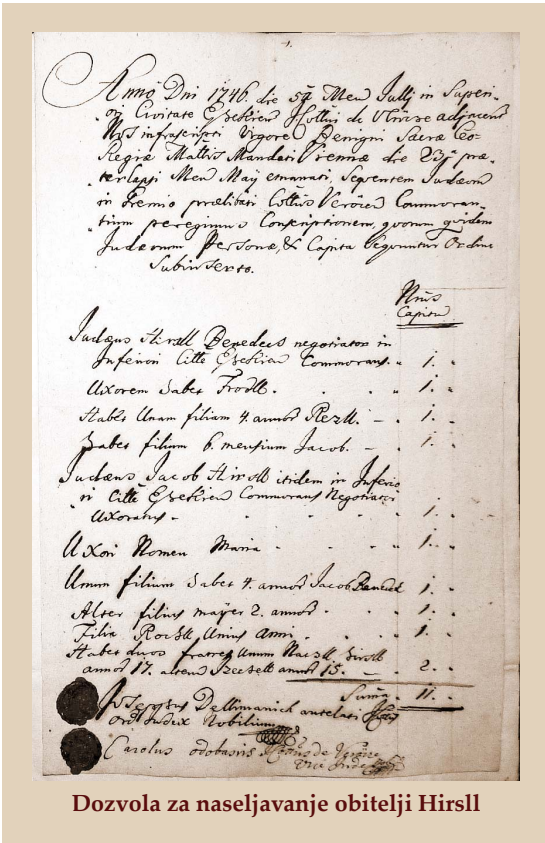 1.
Anno Dni 1746. die 5ta Men Julij in Superi-
ori Civitate Essekien Cottui de Veröcze adjacens
Nos infrascripti Vigore Benigni Sacrae Cæ-
Regiæ Mattis Mandati Viennæ die 23ja præ-
terlapsi Men Maij emanati, Sequentem Judæorum
in Gremio prælibati Cottus Veröcen Commoran-
tium peregimus Conscriptionem, quorum quidem
Judæorum Personæ, & Capita Seguntur Ordine
Subinserto.
Nrus
Capitu
Judæus Hirsll Benedecs negotiator in
Inferiori Citte Essekien Commorans. 1.
Uxorem habet Frodll. 1.
Habet Unam filiam 4. annor Rezll. 1.
Habet filium 6. mensium Jacob. 1.
Judæus Jacob Hirsll itidem in Inferio
ri Citte Essekien Commorans Negotiator
Uxoratus 1.
Uxori Nomen Maria 1.
Unum filium habet 4. annor Jacob Benedek 1.
Alter filius mayer 2. annor 1.
Filia Rochll Unius Anni. 1.
Habet duos fratres Unum Naczll Hirsll
annor 17. alterum annor 15. 2.
Suma 11.
Josephus Dellimanich antelati
Ord Judex Nobilium
Carolus de Veröcze
Dozvola za naseljavanje obitelji Hirsll